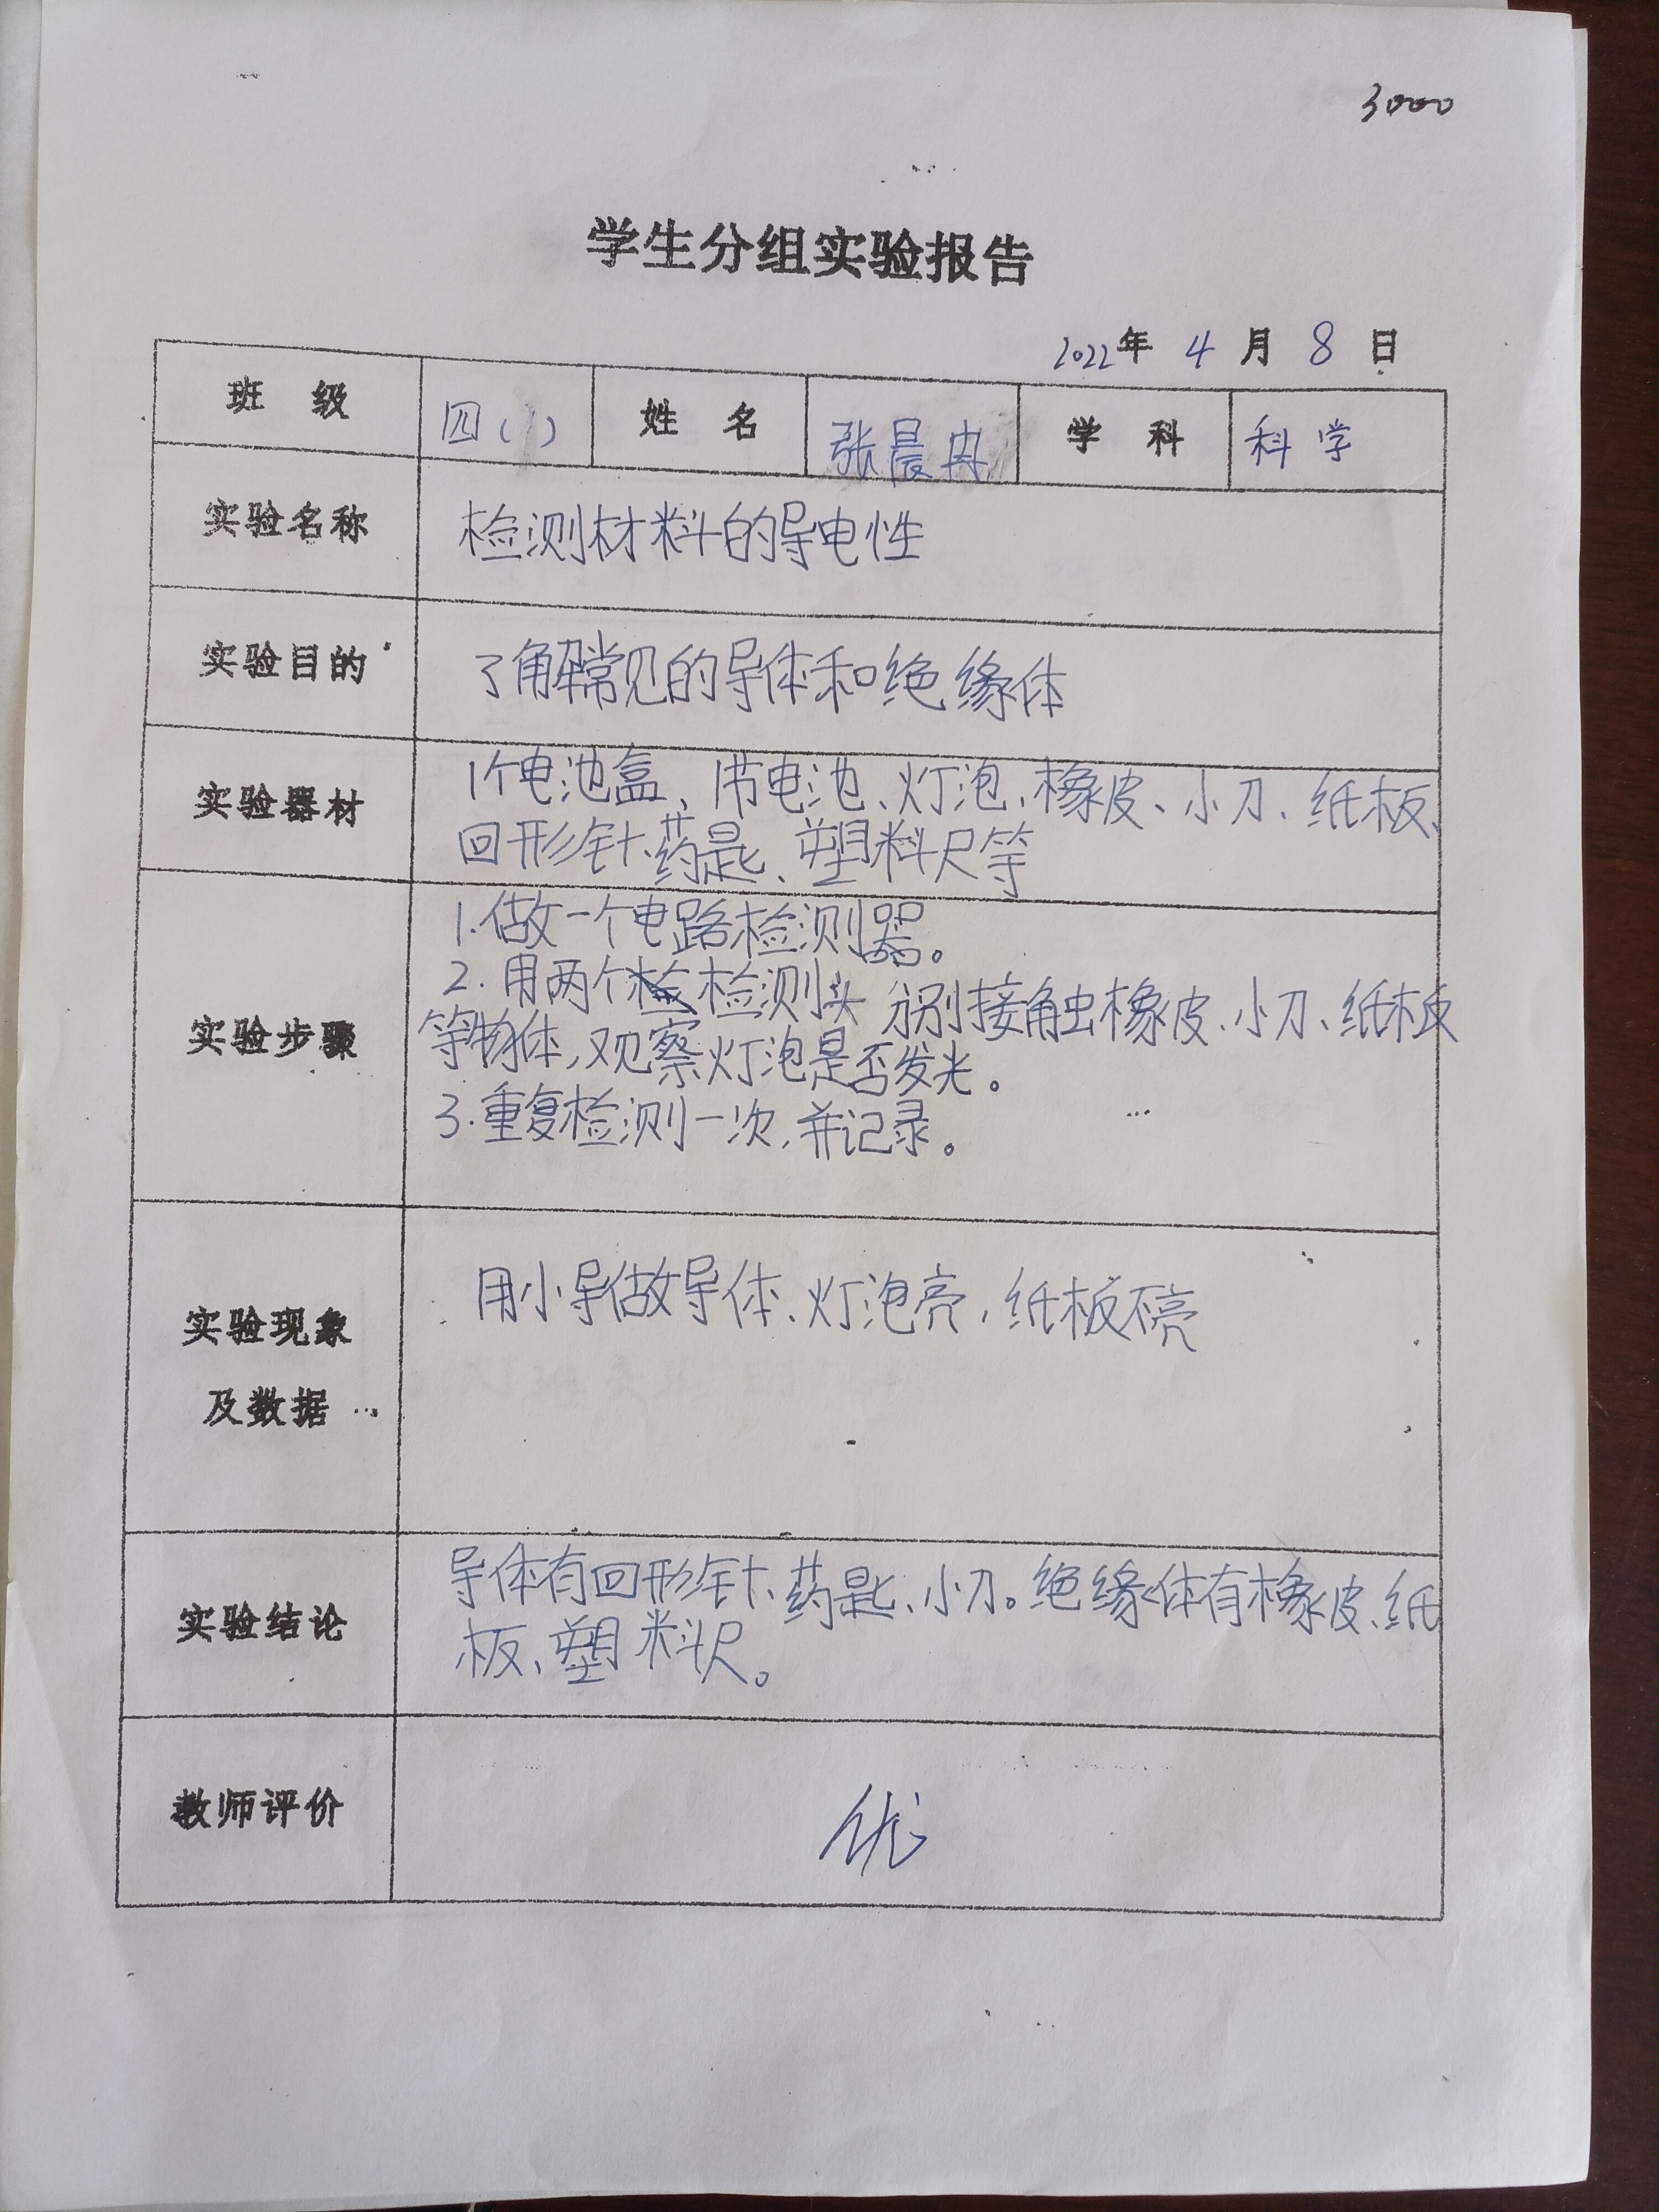 3000
学生分组实验报告
2022年 4 月 8 日
班 级 四( ) 姓 名 张晨冉 学 科 科学
实验名称 检测材料的导电性
实验目的 了解常见的导体和绝缘体
实验器材 1个电池盒、1节电池、灯泡、橡皮、小刀、纸板、
回形针、药匙、塑料尺等
1.做一个电路检测器。
2.用两个检测头 分别接触橡皮、小刀、纸板
实验步骤 等物体,观察灯泡是否发光。
3.重复检测一次,并记录。
用小导做导体、灯泡亮,纸板不亮
实验现象
及数据
导体有回形针、药匙、小刀。绝缘体有橡皮、纸
实验结论 板、塑料尺。
教师评价 优